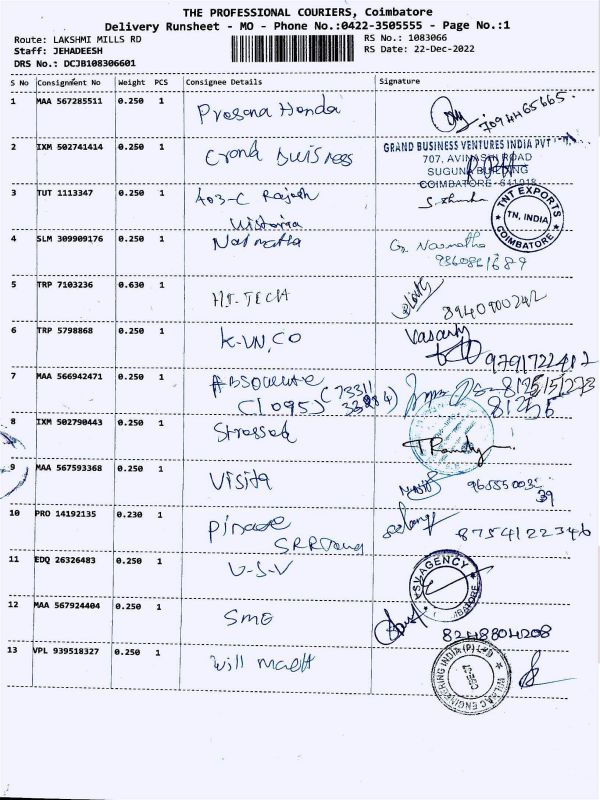 THE PROFESSIONAL COURIERS, Coimbatore
Delivery Runsheet - MO - Phone No.:0422-3505555 - Page No.:1
Route: LAKSHMI MILLS RD
RS No.: 1083066
Staff: JEHADEESH
RS Date: 22-Dec-2022
DRS No.: DCJB108306601
S No Consignment No Weight PCS Consignee Details Signature
1 MAA 567285511 0.250 1 Prosana Honda
7094465665.
2 IXM 502741414 0.250 1
GRAND BUSINESS VENTURES INDIA PVT
707, AVINASHI ROAD
SUGUNA BUILDING
COIMBATORE - 641018
3 TUT 1113347 0.250 1 403-C Rajesh
Wistoria
TNT EXPORTS
TN, INDIA
COIMBATORE
4 SLM 309909176 0.250 1 Nasmatha
G. Nasmatha
5 TRP 7103236 0.630 1 HI-TECH
8940900242
6 TRP 5798868 0.250 1 K-VN.CO
Vasanth
9791722412
7 MAA 566942471 0.250 1 Absolute
(1095)
8 IXM 502790443 0.250 1
9 MAA 567593368 0.250 1 Visita
39
10 PRO 14192135 0.230 1
8754122346
11 EDQ 26326483 0.250 1 U-S-V
AGENCY
12 MAA 567924404 0.250 1 SME
8248804208
13 VPL 939518327 0.250 1 Will
ENGINEERING INDIA (P) LTD